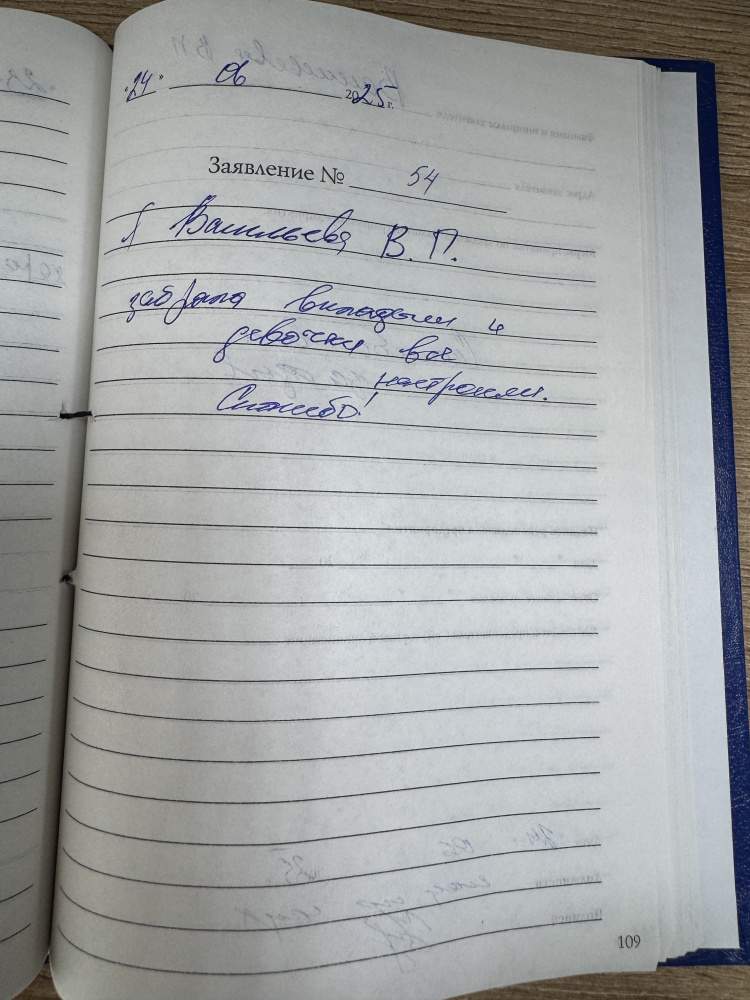 "24" 06 2025 г.
Заявление № 54
Я Васильева В. П.
забрала вкладыши и
девочки все
настроили.
Спасибо!
109